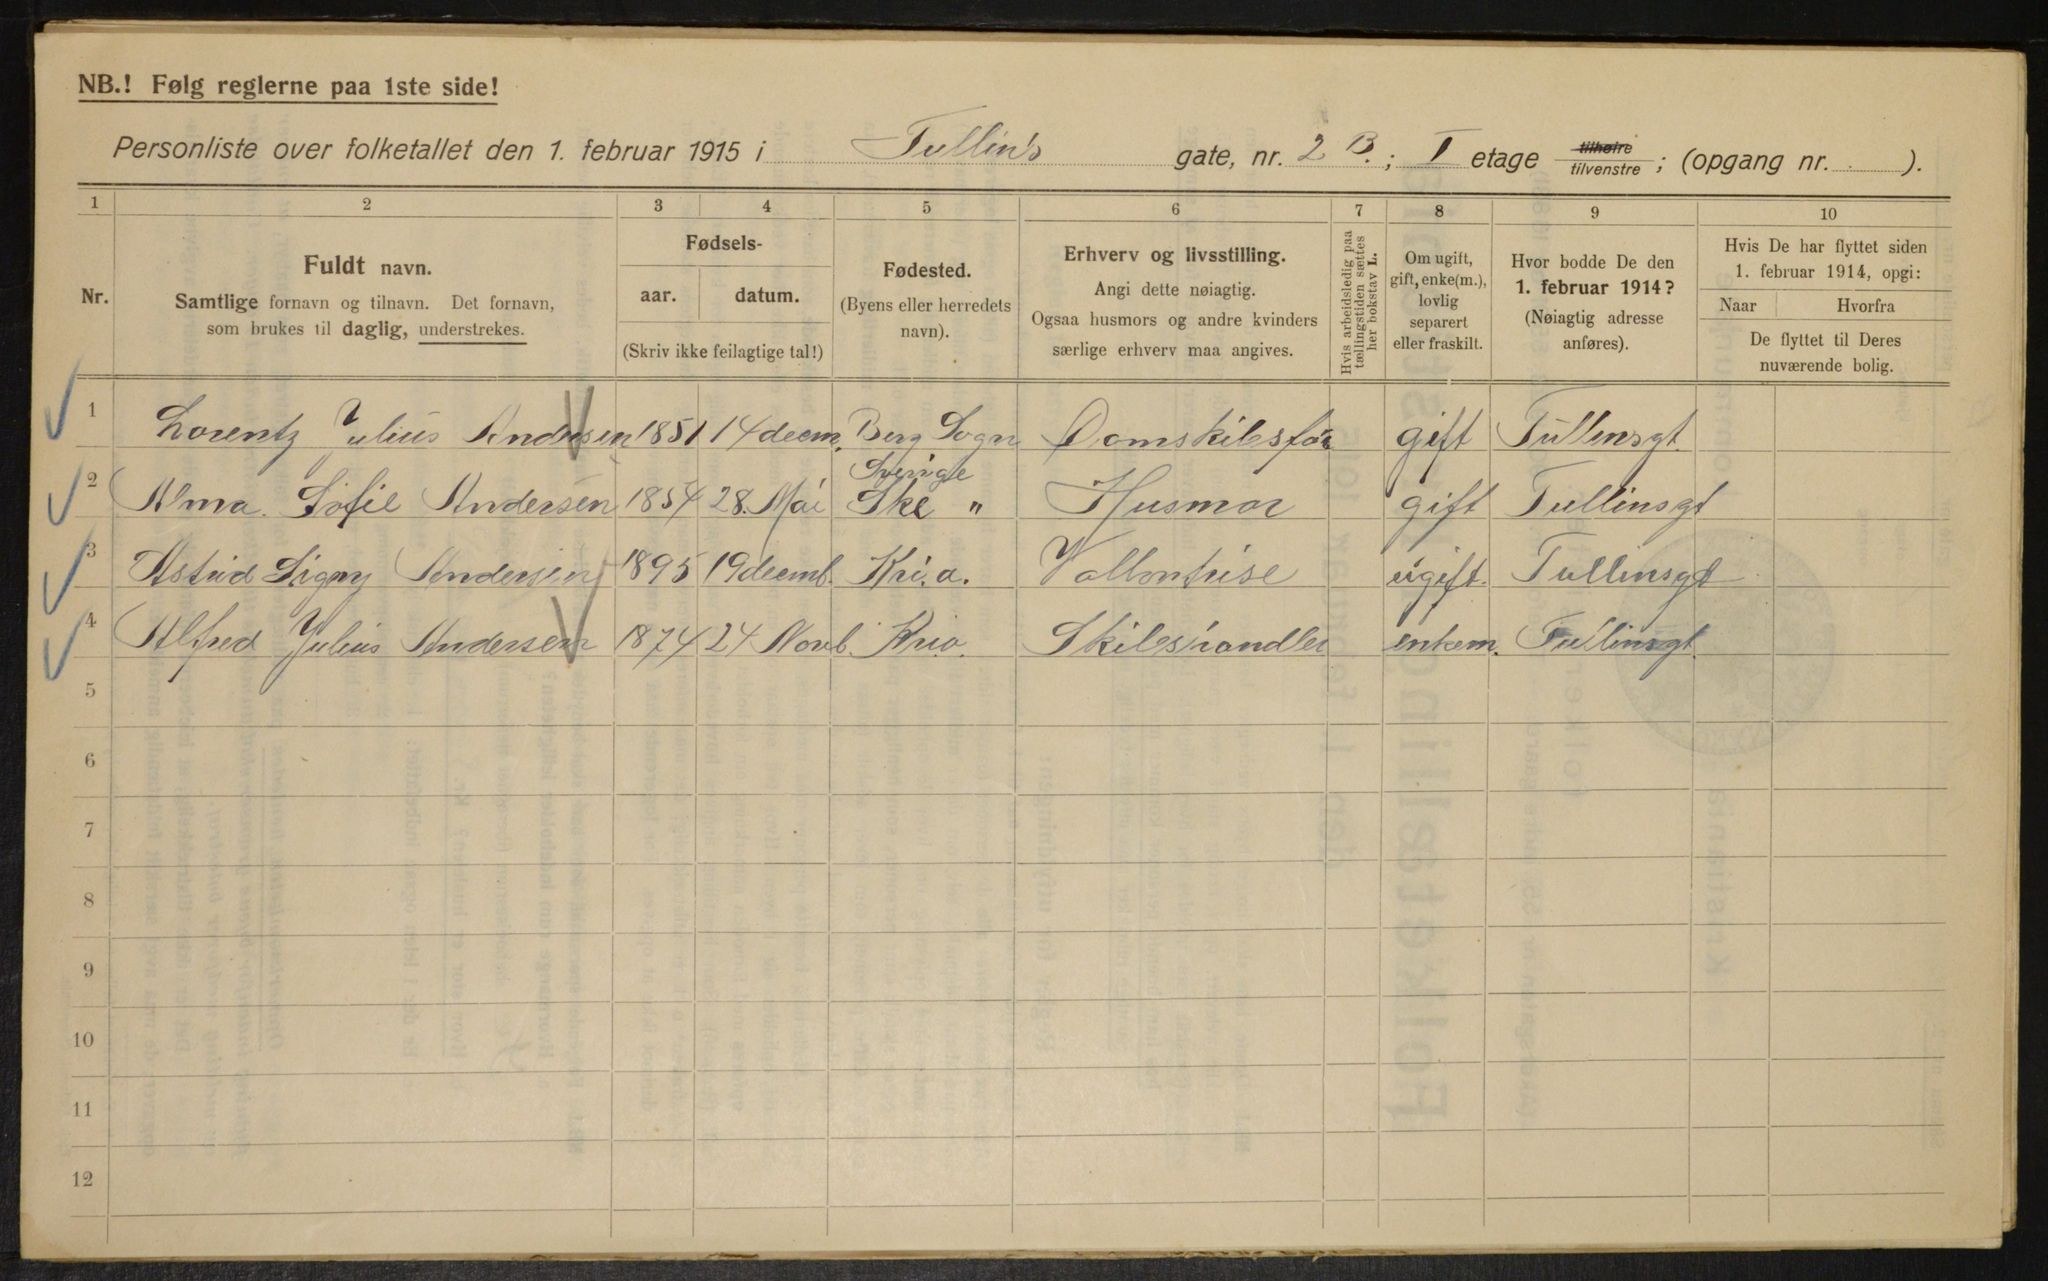 NB.! Følg reglerne paa 1ste side!
Personliste over folketallet den 1. februar 1915 i Tullin's gate, nr. 2 B.; I etage tilhøire tilvenstre; (opgang nr. ).
1 2 3 4 5 6 7 8 9 10
Nr.
Fuldt navn.
Samtlige fornavn og tilnavn. Det fornavn,
som brukes til daglig, understrekes.
Fødsels-
aar. datum.
(Skriv ikke feilagtige tal!)
Fødested.
(Byens eller herredets
navn).
Erhverv og livsstilling.
Angi dette nøiagtig.
Ogsaa husmors og andre kvinders
særlige erhverv maa angives.
Hvis arbeidsledig paa
tællingstiden sættes
her bokstav L.
Om ugift,
gift, enke(m.),
lovlig
separert
eller fraskilt.
Hvor bodde De den
1. februar 1914?
(Nøiagtig adresse
anføres).
Hvis De har flyttet siden
1. februar 1914, opgi:
Naar Hvorfra
De flyttet til Deres
nuværende bolig.
1 Lorentz Julius Andersen 1851 14 decm. Berg Sogn gift Tullinsgt.
Sverige
2 Alma. Sofie Andersen 1854 28. Mai Ske " Husmor gift Tullinsgt
3 Astrid Signy Andersen 1895 19 decmb. Kri.a. ugift. Tullinsgt
4 Alfred Julius Andersen 1874 24 Novb. Kria. enkem. Tullinsgt.
5
6
7
8
9
10
11
12